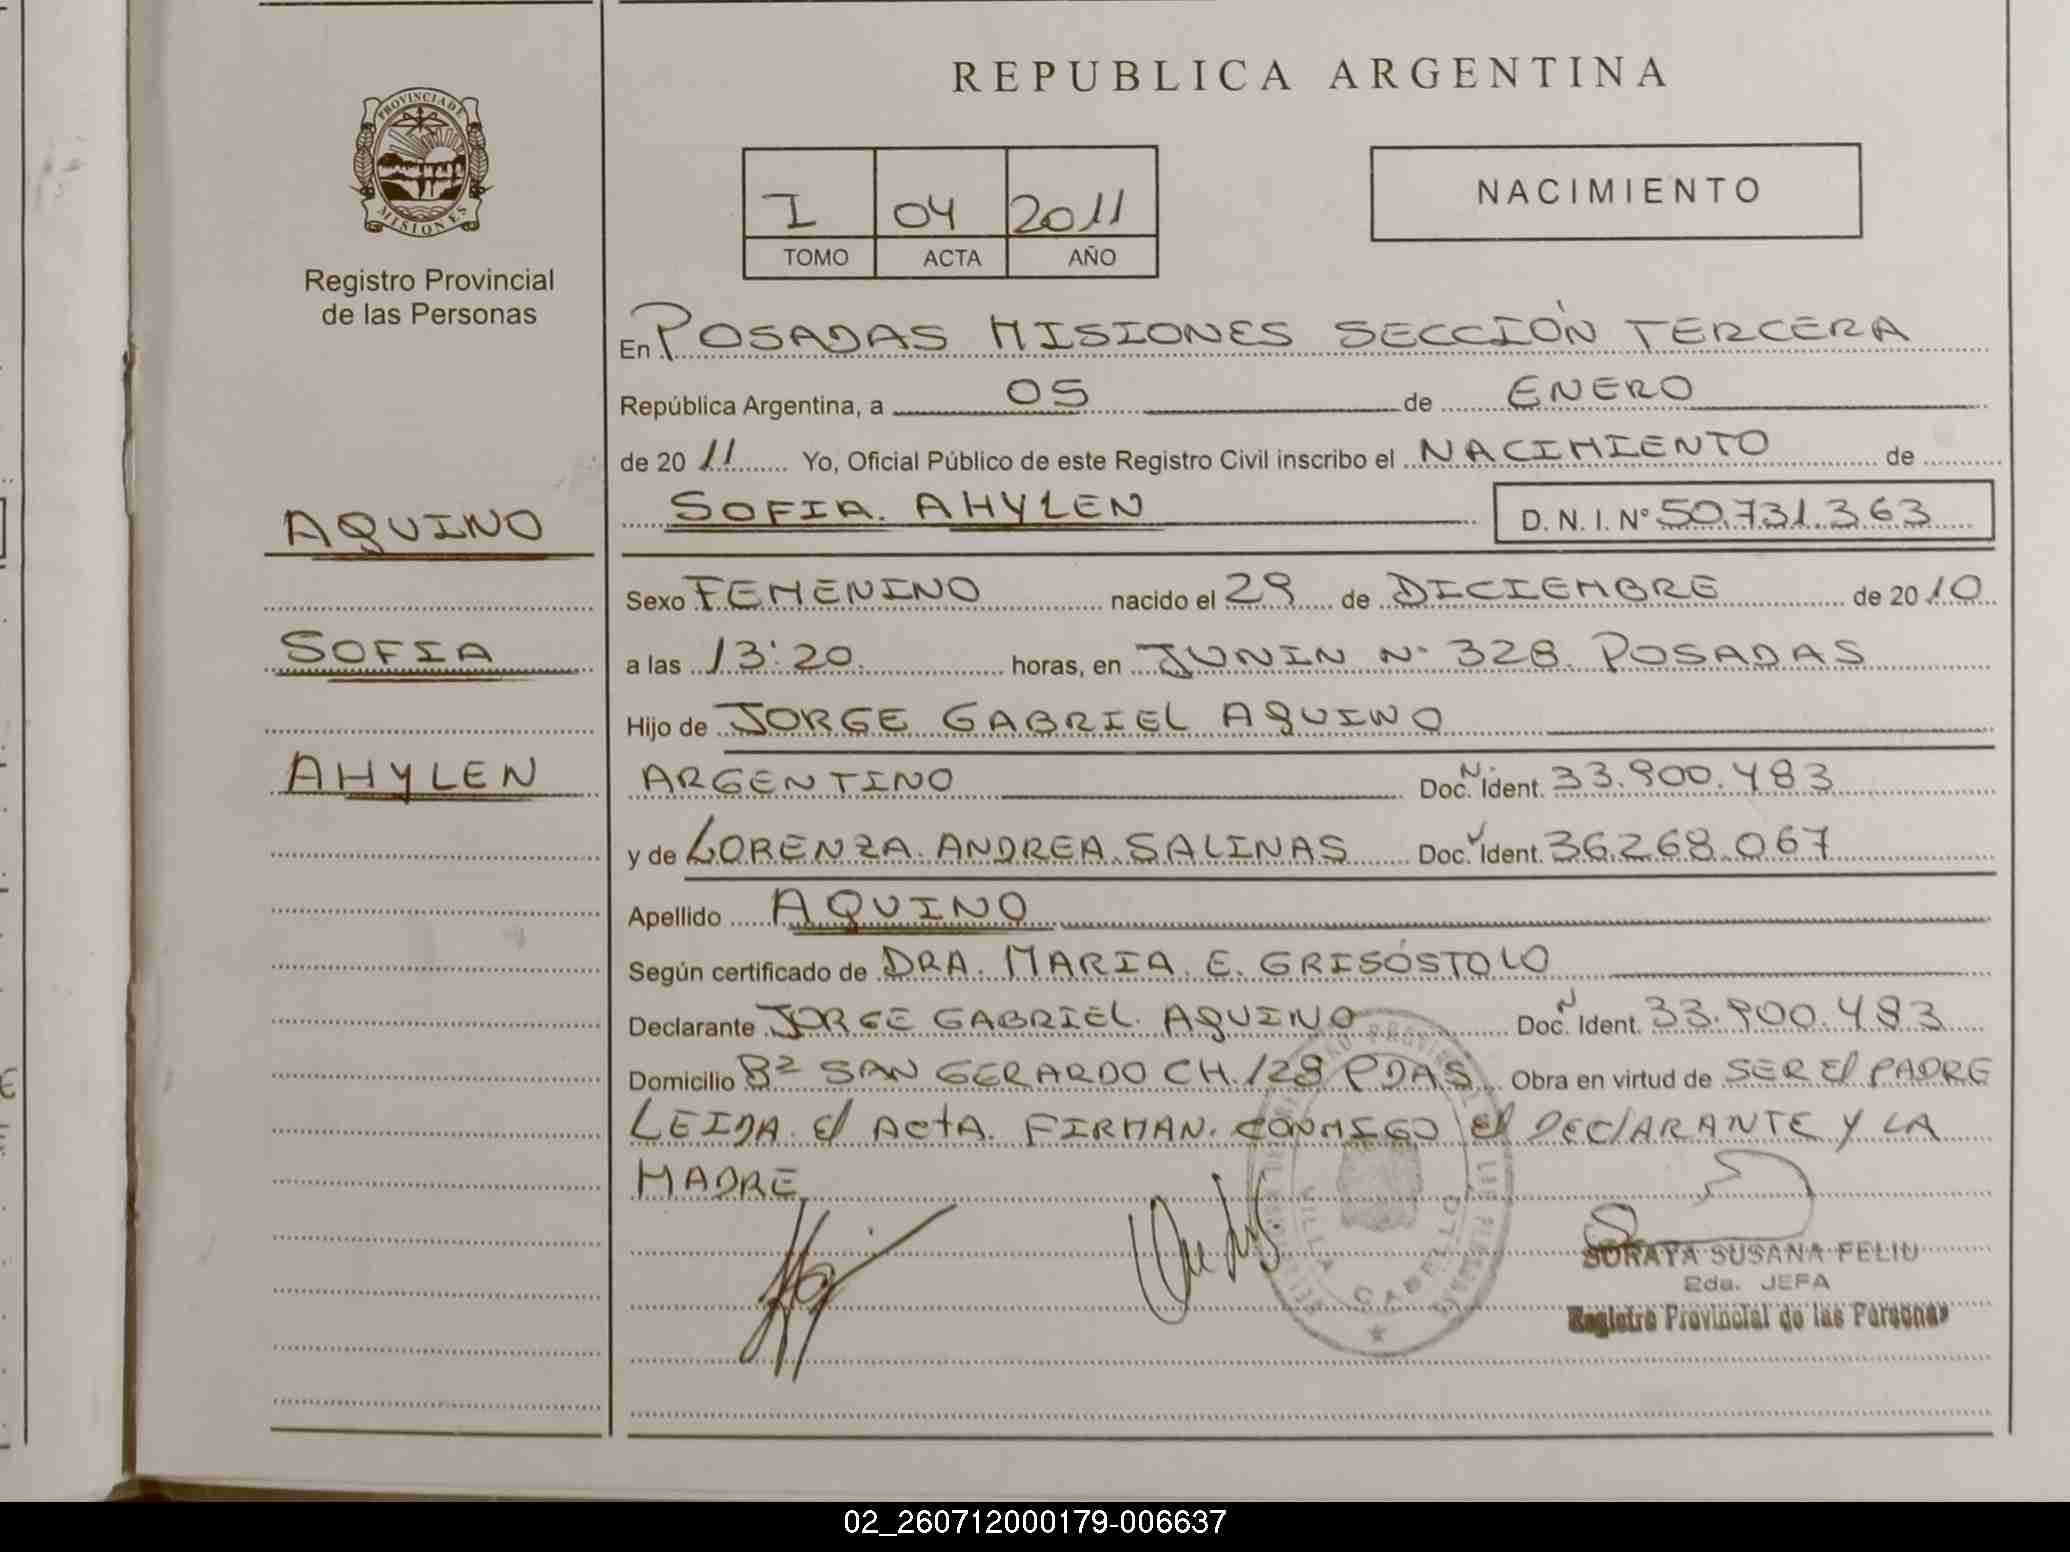 REPUBLICA ARGENTINA
PROVINCIA DE
MISIONES
Registro Provincial
de las Personas
I 04 2011
TOMO ACTA AÑO
NACIMIENTO
En POSADAS MISIONES SECCIÓN TERCERA
República Argentina, a 05 de ENERO
de 2011 Yo, Oficial Público de este Registro Civil inscribo el NACIMIENTO de
SOFIA AHYLEN D. N. I. Nº 50.731.363
AQUINO
SOFIA
AHYLEN
Sexo FEMENINO nacido el 29 de DICIEMBRE de 2010
a las 13:20 horas, en JUNIN Nº 328 POSADAS
Hijo de JORGE GABRIEL AQUINO
ARGENTINO Doc. Ident. 33.900.483
y de LORENZA ANDREA SALINAS Doc. Ident. 36.268.067
Apellido AQUINO
Según certificado de DRA. MARIA E. GRISÓSTOLO
Declarante JORGE GABRIEL AQUINO Doc. Ident. 33.900.483
Domicilio Bº SAN GERARDO CH. 128 PDAS Obra en virtud de SER El PADRE
LEIDA El ActA FIRMAN CONMIGO El DEClARANTE Y LA
MADRE
VILLA CABELLO
SORAYA SUSANA FELIU
2da. JEFA
Registro Provincial de las Personas
02_260712000179-006637